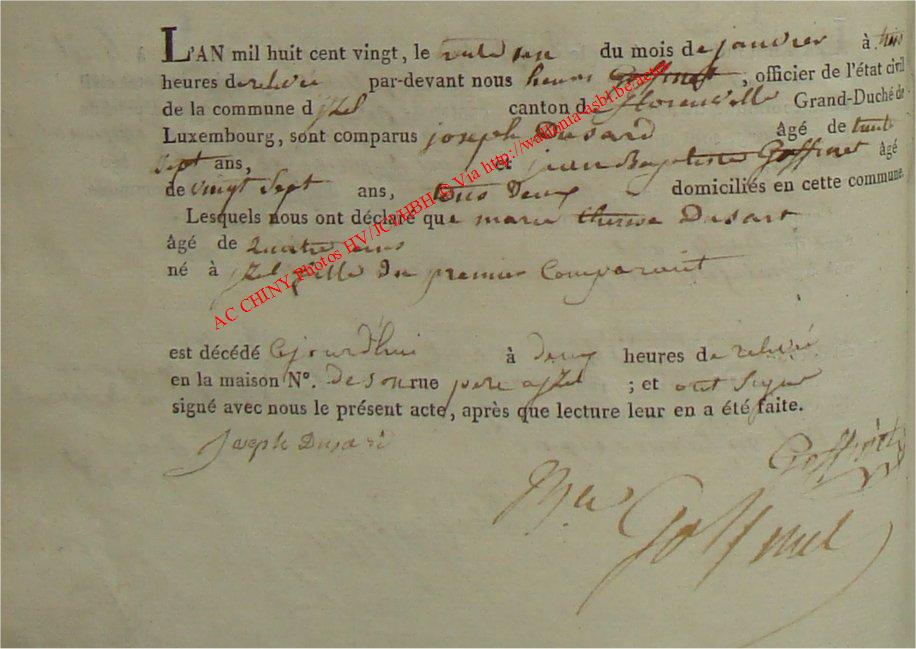 L'AN mil huit cent vingt, le du mois de janvier à trois
heures de relvée par-devant nous henri Goffinet, officier de l'état civil
de la commune d jzel canton de florenville Grand-Duché de
Luxembourg, sont comparus joseph Dusard âgé de trente
sept ans, et jean Baptiste Goffinet âgé
de vingt sept ans, tous Deux domiciliés en cette commune
Lesquels nous ont déclaré que marie therese Dusart
âgé de quatre ans
né à jzel fille du premier Comparant
est décédé cejourd'hui à deux heures de relevée
en la maison N°. de son rue pere a jzel ; et ont signé
signé avec nous le présent acte, après que lecture leur en a été faite.
joseph Dusard
Goffinet
Goffinet
AC CHINY Photos HV/JC/HBH © Via http://wallonia-asbl.be.actes